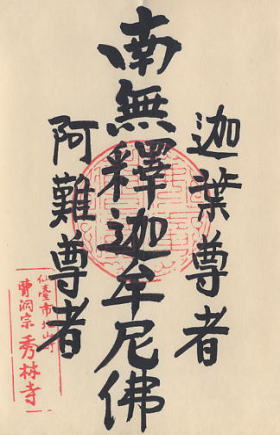 迦葉尊者
南無釋迦牟尼佛
阿難尊者
仙臺市北山町
曹洞宗 秀林寺